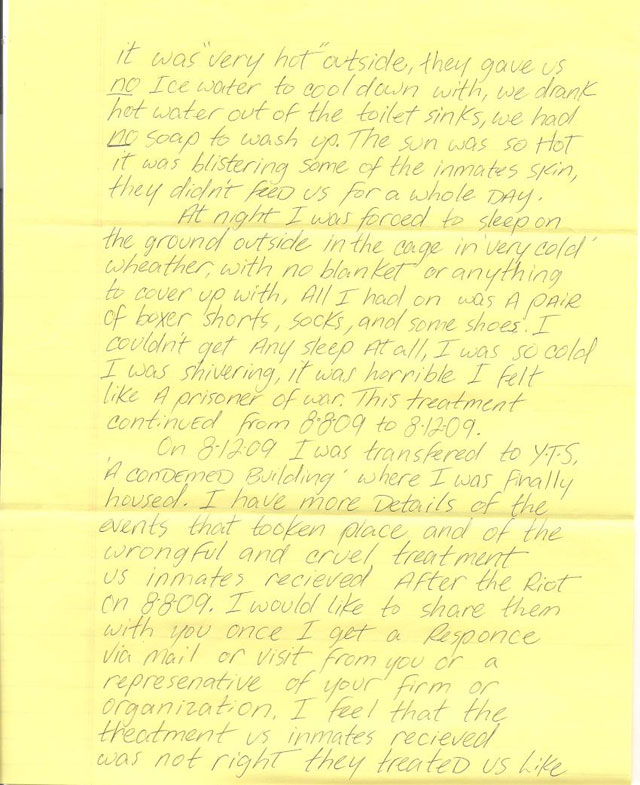 it was "very hot" outside, they gave us
no Ice water to cool down with, we drank
hot water out of the toilet sinks, we had
no soap to wash up. The sun was so HOT
it was blistering some of the inmates skin,
they didn't FEED us for a whole DAY.
At night I was forced to sleep on
the ground outside in the cage in 'very cold'
wheather, with no blanket or anything
to cover up with, All I had on was A pAiR
of boxer shorts, socks, and some shoes. I
couldn't get Any sleep At all, I was so cold
I was shivering, it was horrible I felt
like A prisoner of war. This treatment
continuED from 8-8-09 to 8-12-09.
On 8-12-09 I was transfered to Y.T.S,
'A conDEMED Building' where I was finally
housed. I have more Details of the
events that tooken place, and of the
wrongful and cruel treatment
us inmates recieved After the Riot
on 8-8-09. I would like to share them
with you once I get a Responce
via mail or visit from you or a
represenative of your firm or
organization. I feel that the
treatment us inmates recieved
was not right they treateD us like